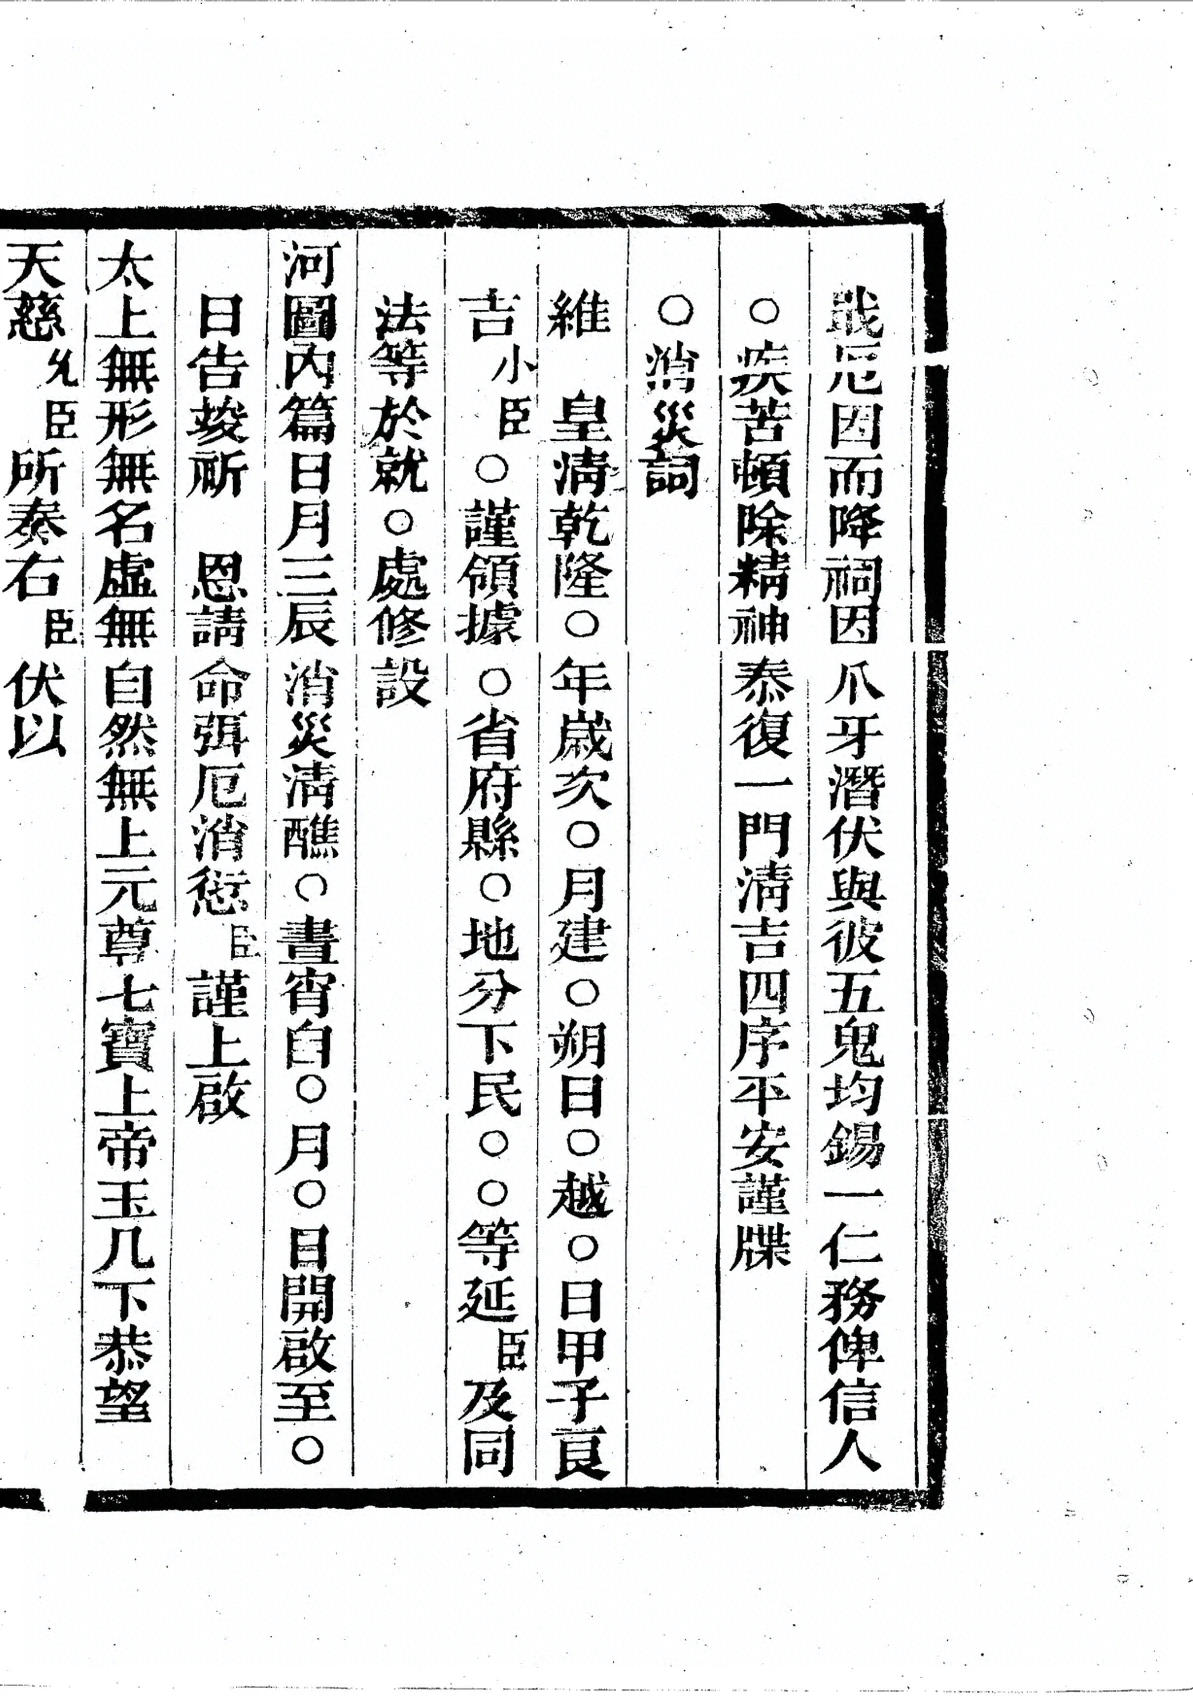 戢厄因而降祠因爪牙潛伏與彼五鬼均錫一仁務俾信人
○疾苦頓除精神泰復一門清吉四序平安謹牒
○消災詞
維 皇清乾隆○年歲次○月建○朔日○越○日甲子良
吉小臣○謹領據○省府縣○地分下民○○等延臣及同
法等於就○處修設
河圖內篇日月三辰消災清醮○晝宵自○月○日開啟至○
日告竣祈 恩請命弭厄消愆臣謹上啟
太上無形無名虛無自然無上元尊七寶上帝玉几下恭望
天慈允臣所奏右臣伏以